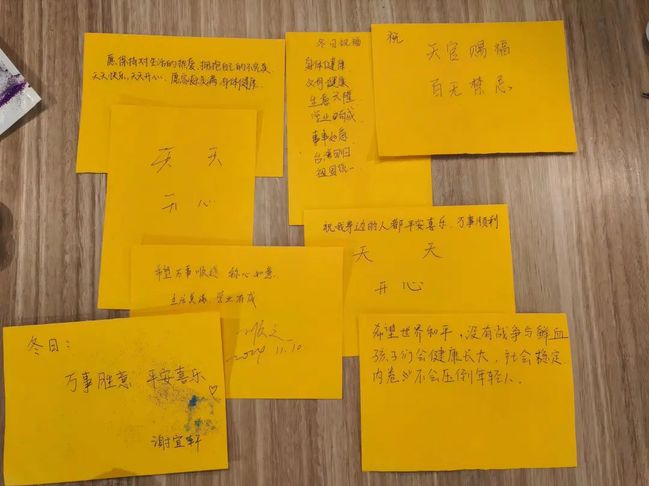 愿你持对生活的热爱、拥抱自己的不完美
天天快乐、天天开心、愿家庭美满、身体健康
冬日祝福
身体健康
父母健康
生意兴隆
学业有成
事事如意
台湾回归
祖国统一
祝
天官赐福
百无禁忌
天 天
开 心
祝我身边的人都平安喜乐、万事顺利
天 天
开 心
希望万事顺遂 称心如意
生活美满、学业有成
2024 11.10
冬日:
万事胜意 平安喜乐♡
谢宜轩
希望世界和平,没有战争与鲜血
孩子们会健康长大,社会稳定
内卷 不会压倒年轻人。